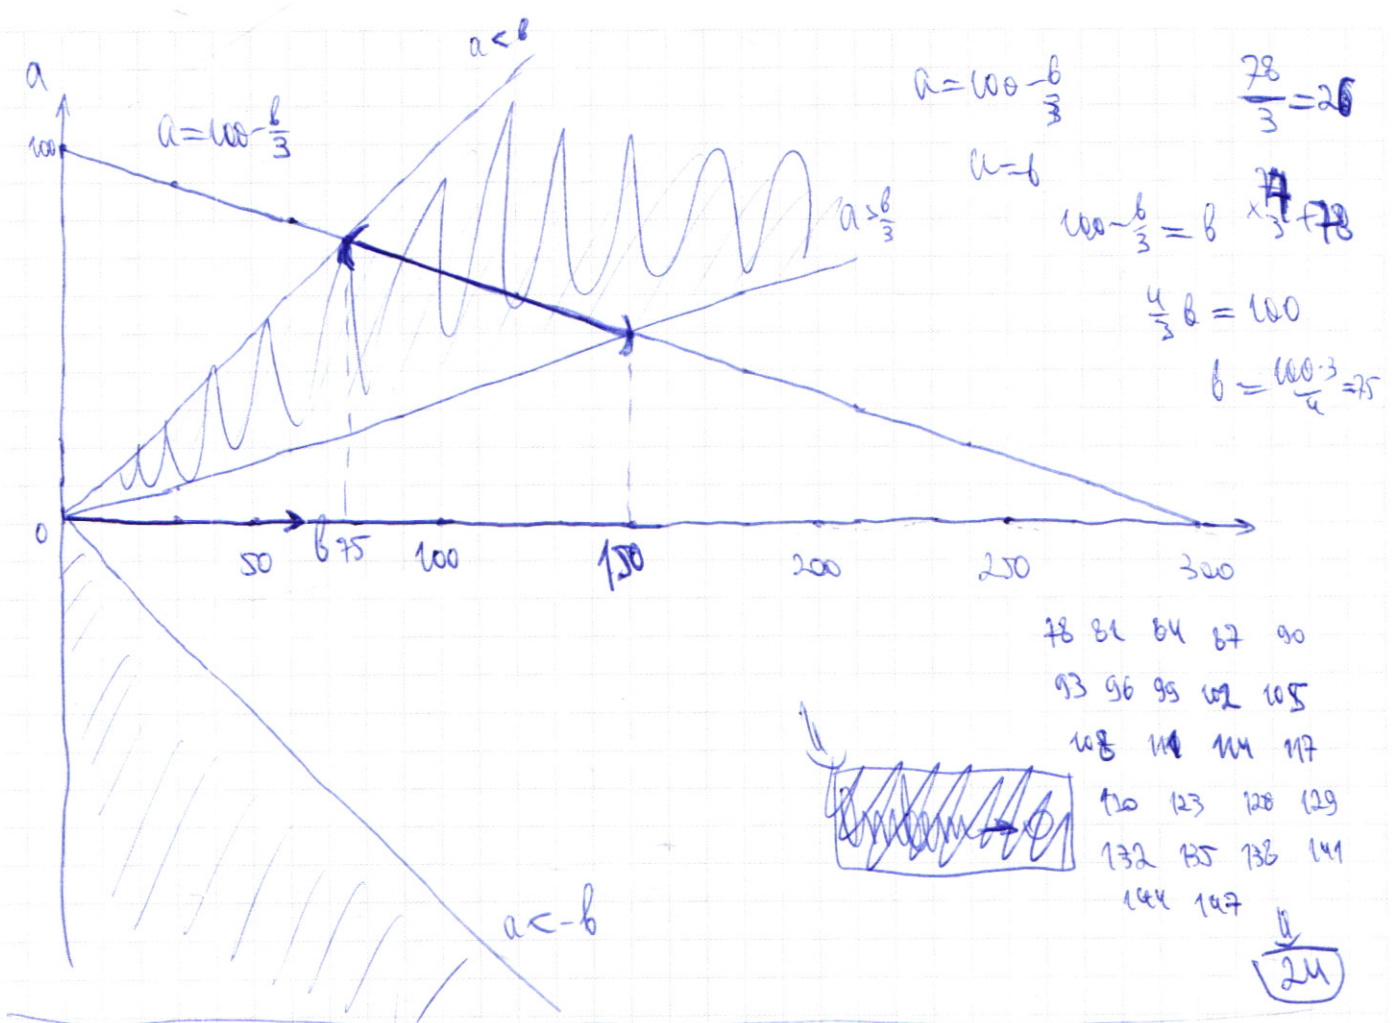 a < b
a
a = 100 - b/3
100
a > b/3
0
50 b 75 100 150 200 250 300
a < -b
a = 100 - b/3
a = b
100 - b/3 = b
4/3 b = 100
b = 100·3/4 = 75
78/3 = 26
78 81 84 87 90
93 96 99 102 105
108 111 114 117
120 123 126 129
132 135 138 141
144 147
24